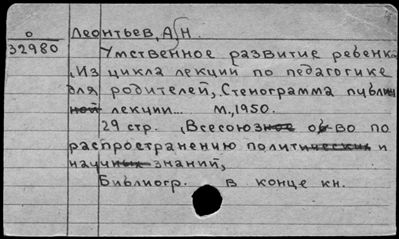 о Леонтьев, А.Н.
32980
Умственное развитие ребенка
,Из цикла лекций по педагогике
для родителей, Стенограмма публич
ной лекции... М.,1950.
29 стр. ,Всесоюзное об-во по
распространению политических и
научных знаний,
Библиогр. в конце кн.